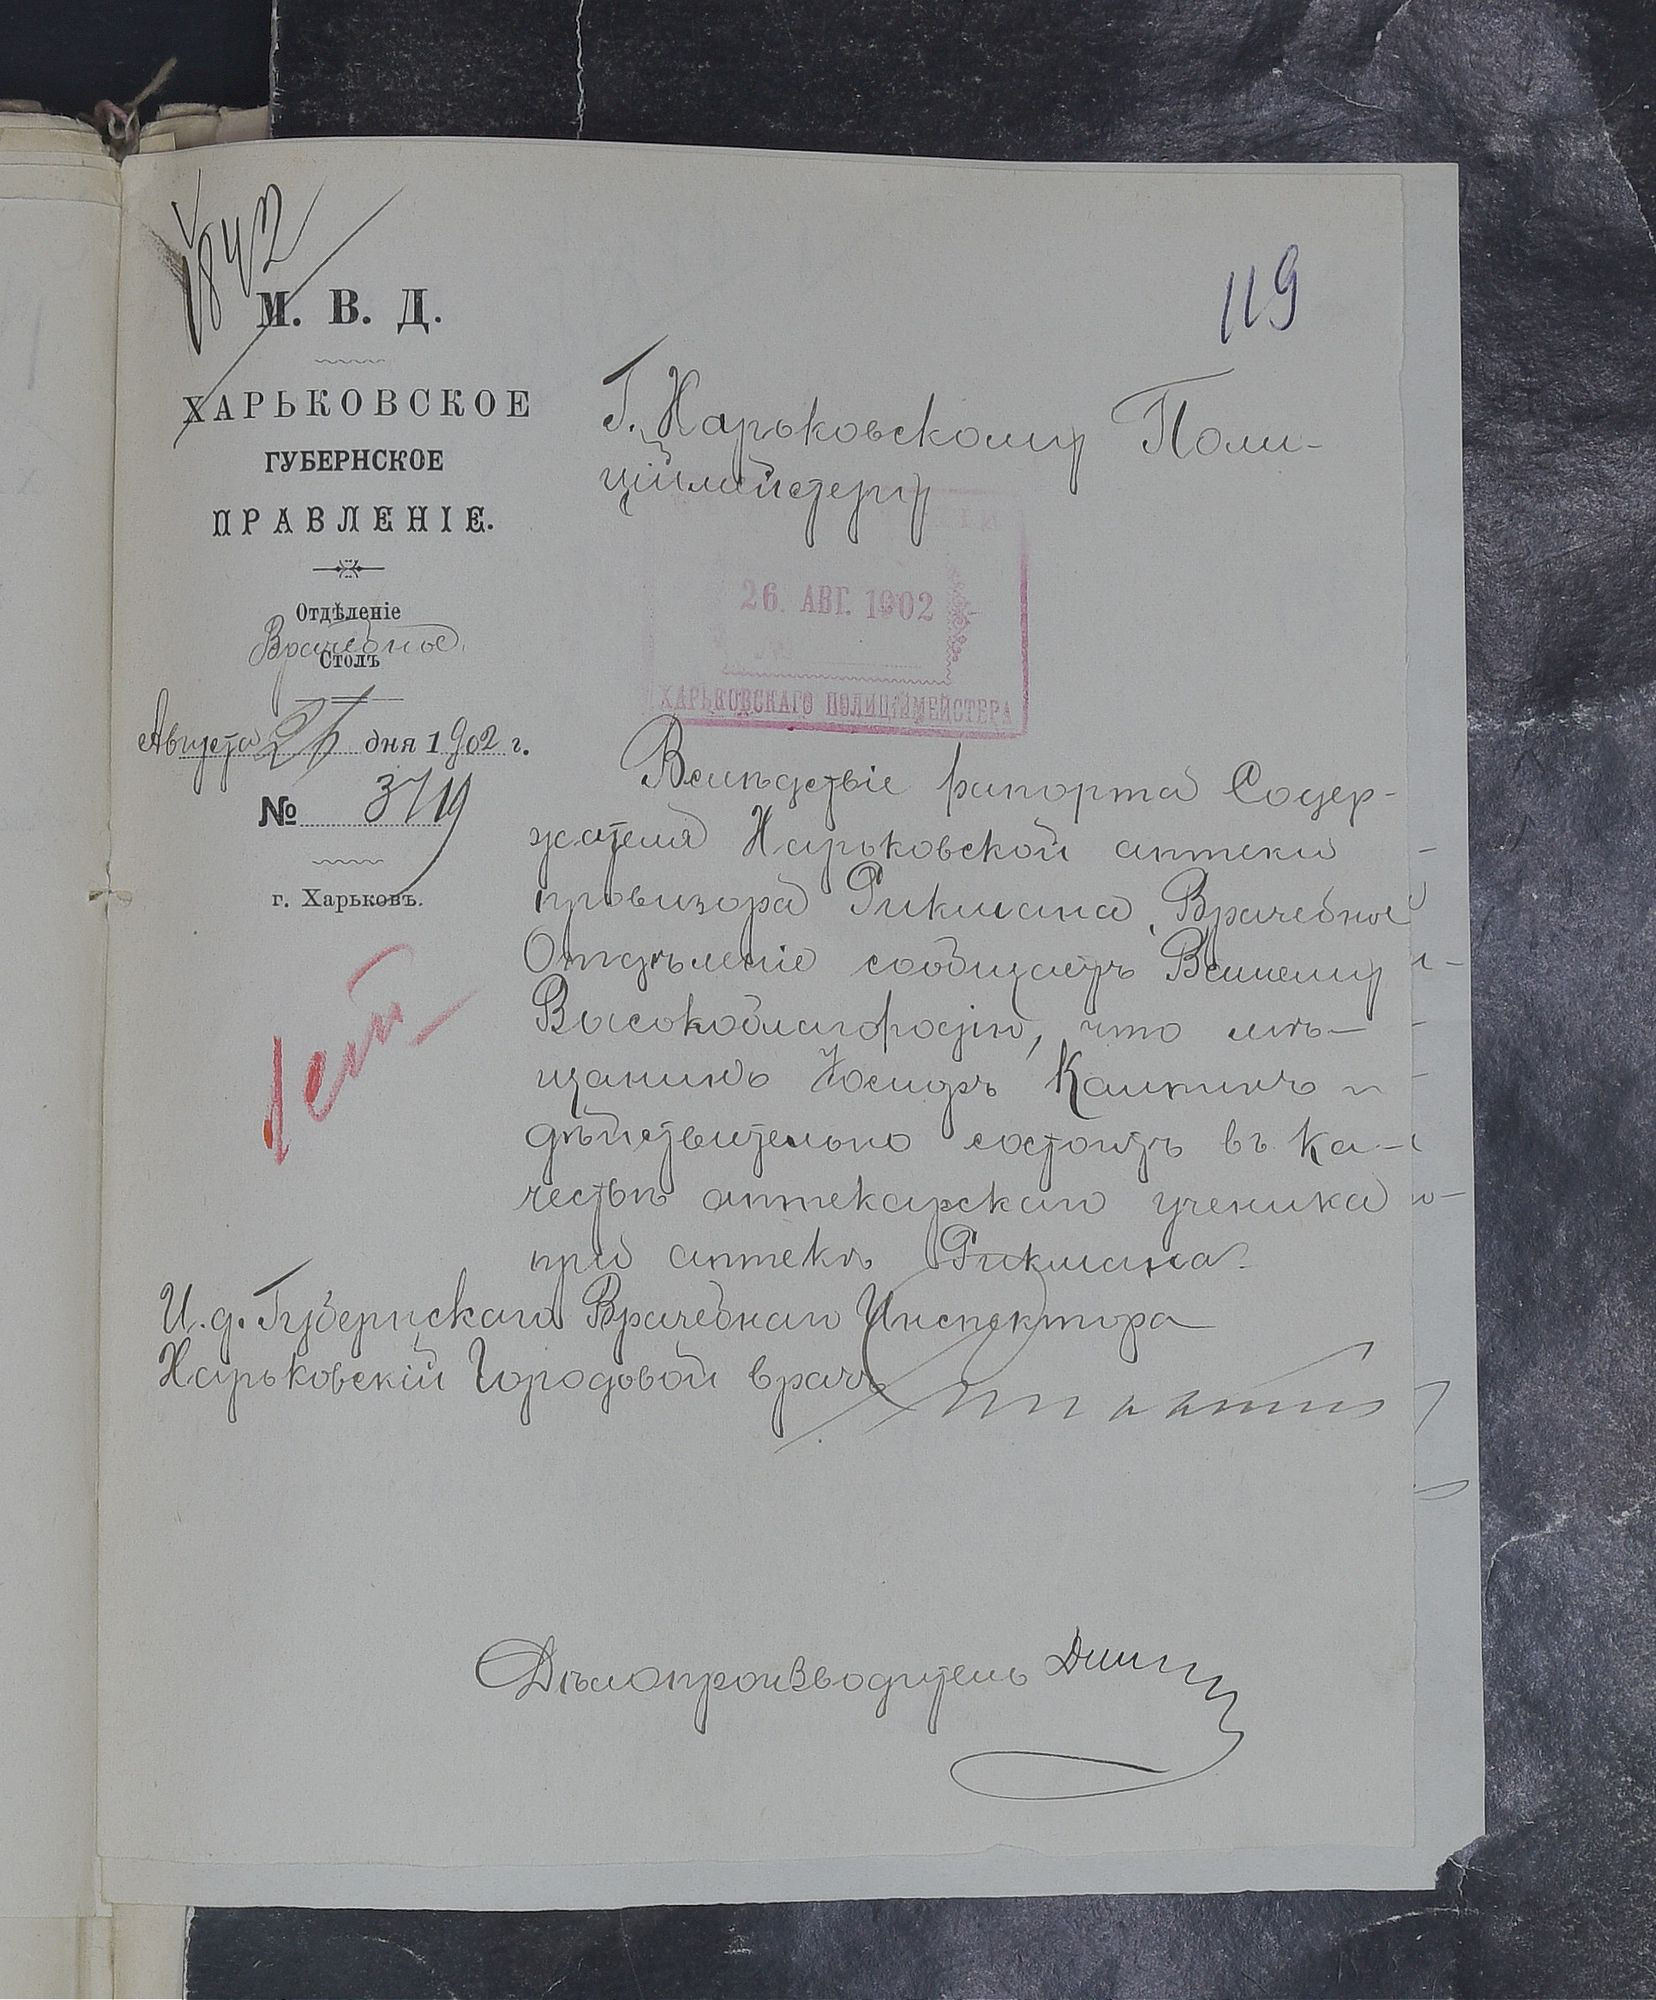 1842
119
М. В. Д.
ХАРЬКОВСКОЕ
ГУБЕРНСКОЕ
ПРАВЛЕНІЕ.
Отдѣленіе
Врачебное.
Столъ
Августа 26 дня 1902 г.
№ 3719
г. Харьковъ.
Г. Харьковскому Поли-
ціймейстеру
26. АВГ. 1902
ХАРЬКОВСКАГО ПОЛИЦІЙМЕЙСТЕРА
Вслѣдствіе рапорта Содер-
жателя Харьковской аптеки
провизора Рикмана, Врачебное
Отдѣленіе сообщаетъ Вашему
Высокоблагородію, что мѣ-
щанинъ Іосифъ
дѣйствительно состоитъ въ ка-
чествѣ аптекарскаго ученика
при аптекѣ Рикмана.
И. д. Губернскаго Врачебнаго Инспектора
Харьковскій Городовой врачъ
Дѣлопроизводитель